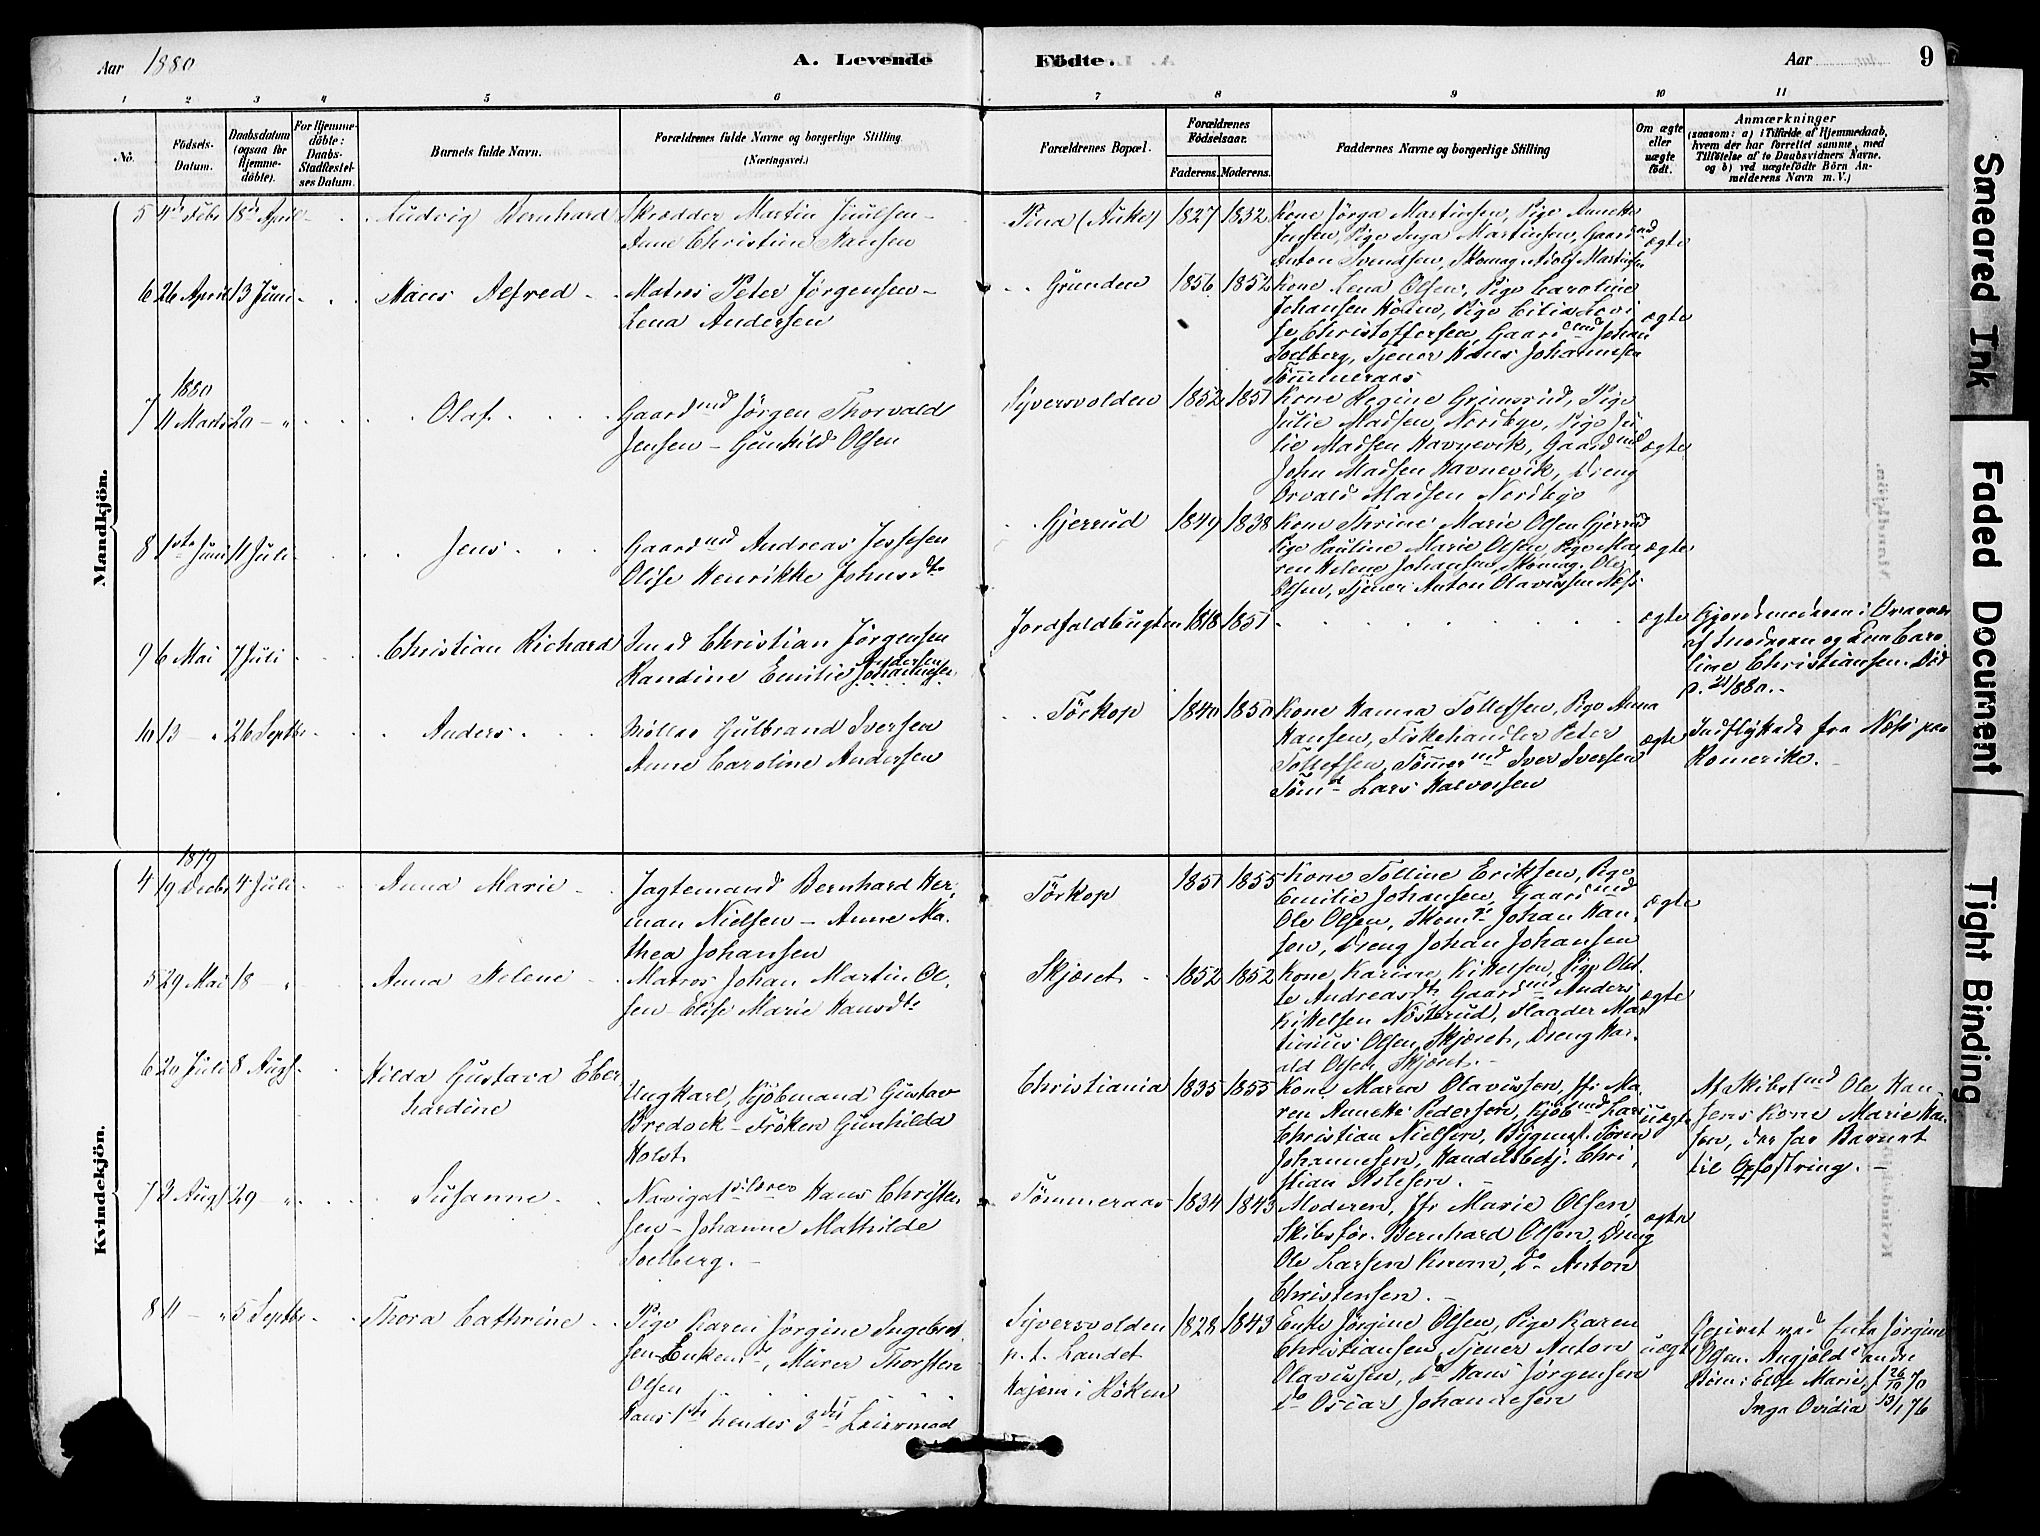 Aar 1880
A. Levende
Födte.
Aar
9
1 2 3 4 5 6 7 8 9 10 11
No.
Födsels-
Datum.
Daabsdatum
(ogsaa for
Hjemme-
döbte).
For Hjemme-
döbte:
Daabs-
Stadfæstel-
ses Datum.
Barnets fulde Navn.
Forældrenes fulde Navne og borgerlige Stilling
(Næringsvei.)
Forældrenes Bopæl.
Forældrenes
Födselsaar.
Faderens. Moderens.
Faddernes Navne og borgerlige Stilling
Om ægte
eller
uægte
födt.
Anmærkninger
(saasom: a) i Tilfælde af Hjemmedaab,
hvem der har forrettet samme, med
Tilföielse af to Daabsvidners Navne,
og b) ved uægtefödte Börn An-
melderens Navn m. V.)
Mandkjön.
5 4de Febr 18de April Ludvig Bernhard
Skrædder Martin Juulsen -
Anne Christine Hansen
1827 1832
Kone Jörga Martinsen, Pige Annette
Jensen, Pige Inga Martinsen, Gaardmd
Anton Svendsen, Skomag. Adolf Martinsen
ægte
6 26 April 13 Juni Hans Alfred
Matros Peter Jörgensen -
Lena Andersen
Grunden 1856 1852
Kone Lena Olsen, Pige Caroline
Johansen Holm, Pige Cilia Lovi
se Christoffersen, Gaardmd Johan
Solberg, Tjener Hans Johannesen
Tömmeraas
ægte
1880
7 11 Marts 20 - " Olaf
Gaardmd Jörgen Thorvald
Jensen - Gunhild Olsen
Syversvolden 1852 1851
Kone Regine Grimsrud, Pige
Julie Madsen Nordbye, Pige Ju
lie Madsen Havnevik, Gaardmd
John Madsen Havnevik, Dreng
Orvald Madsen Nordbye
ægte
8 1ste Juni 11 Juli Jens
Gaardmd Andreas Jessesen
Olise Henrikke Johnsdtr
Gjerrud 1849 1838
Kone Thrine Marie Olsen Gjerrud
Pige Pauline Marie Olsen, Pige Ma
ren Helene Johansen, Skomag. Ole
Olsen, Tjener Anton Olavessen Næss
ægte
9 6 Mai 7 Juli Christian Richard
Inds Christian Jörgensen
Randine Emilie Johannesen
Andersen
Jordfaldbugten 1818 1851
ægte
Gjordemoderen i
af Moderen og Lina Caro
line Christiansen. Död
10 13 - " 26 Septbr Anders
Möller Gulbrand Iversen
Anne Caroline Andersen
Törkop 1840 1850
Kone Hanna Tollefsen, Pige Anna
Hansen, Fiskehandler Peter
Tollefsen, Tömmermd Iver Iversen
Tömd Lars Halvorsen
ægte
Indflyttede fra Næss paa
Romerike.
Kvindekjön.
1879
4 19 Decbr 4 Juli Anna Marie
Jagtemand Bernhard Her-
man Nielsen - Anne Ma-
thea Johansen
Törkop
1851 1855
Kone Tolline Eriksen, Pige
Emilie Johansen, Gaardmd
Ole Olsen, Skom. Johan Han-
sen, Dreng Johan Johansen
ægte
5 29 Mai 18 - " Anna Helene
Matros Johan Martin Ol-
sen - Elise Marie Hansdtr
Skjæret 1852 1852
Kone Karine Kittelsen, Pige Olet
te Andreasdtr, Gaardmd Anders
Kittelsen Nösterud, Flaader Mar
tinius Olsen Skjæret, Dreng Har-
ald Olsen Skjæret.
ægte
6 20 Juli 8 Augs Hilda Gustava Eber
hardine
Ungkarl, Kjöbmand Gustav
Bredock - Fröken Gunhilda
Holst
Christiania 1835 1855
Kone Maren Olavessen, Jfr Ma-
ren Annette Pedersen, Kjöbmd Lars
Christian Nielsen, Bygmst. Sören
Johannesen, Handelsbetj. Chri-
stian Aslesen.
uægte
Af Skibstmd Ole Han-
sens Kone Marie Han-
sen, der har Barnet
til Opfostring. -
7 2 Augs 29 - " Susanne
Navigatslærer Hans Christen
sen - Johanne Mathilde
Solberg. -
Tömmeraas 1834 1843
Moderen, Jfr Marie Olsen,
Skibsför. Bernhard Olsen, Dreng
Ole Larsen Knem, Do Anton
Christensen. -
ægte
8 11 - " 5 Septbr Thora Cathrine
Pige Karen Jörgine Ingebret
sen - Enkemd, Murer Thorsten
Olsen
Hans 1ste hendes 3die Leiermaal
Syversvolden
p. t. Landet
Højem i Höken
1828 1843
Enke Jörgine Olsen, Pige Karen
Christiansen, Tjener Anton
Olavessen, do Hans Jörgensen
do Oscar Johannesen
uægte
ved Enke Jörgine
Olsen. Angjold andre
Börn: Elise Marie, f 26/10 70
Inga Ovidia 13/1 76
Smeared Ink
Faded Document
Tight Binding